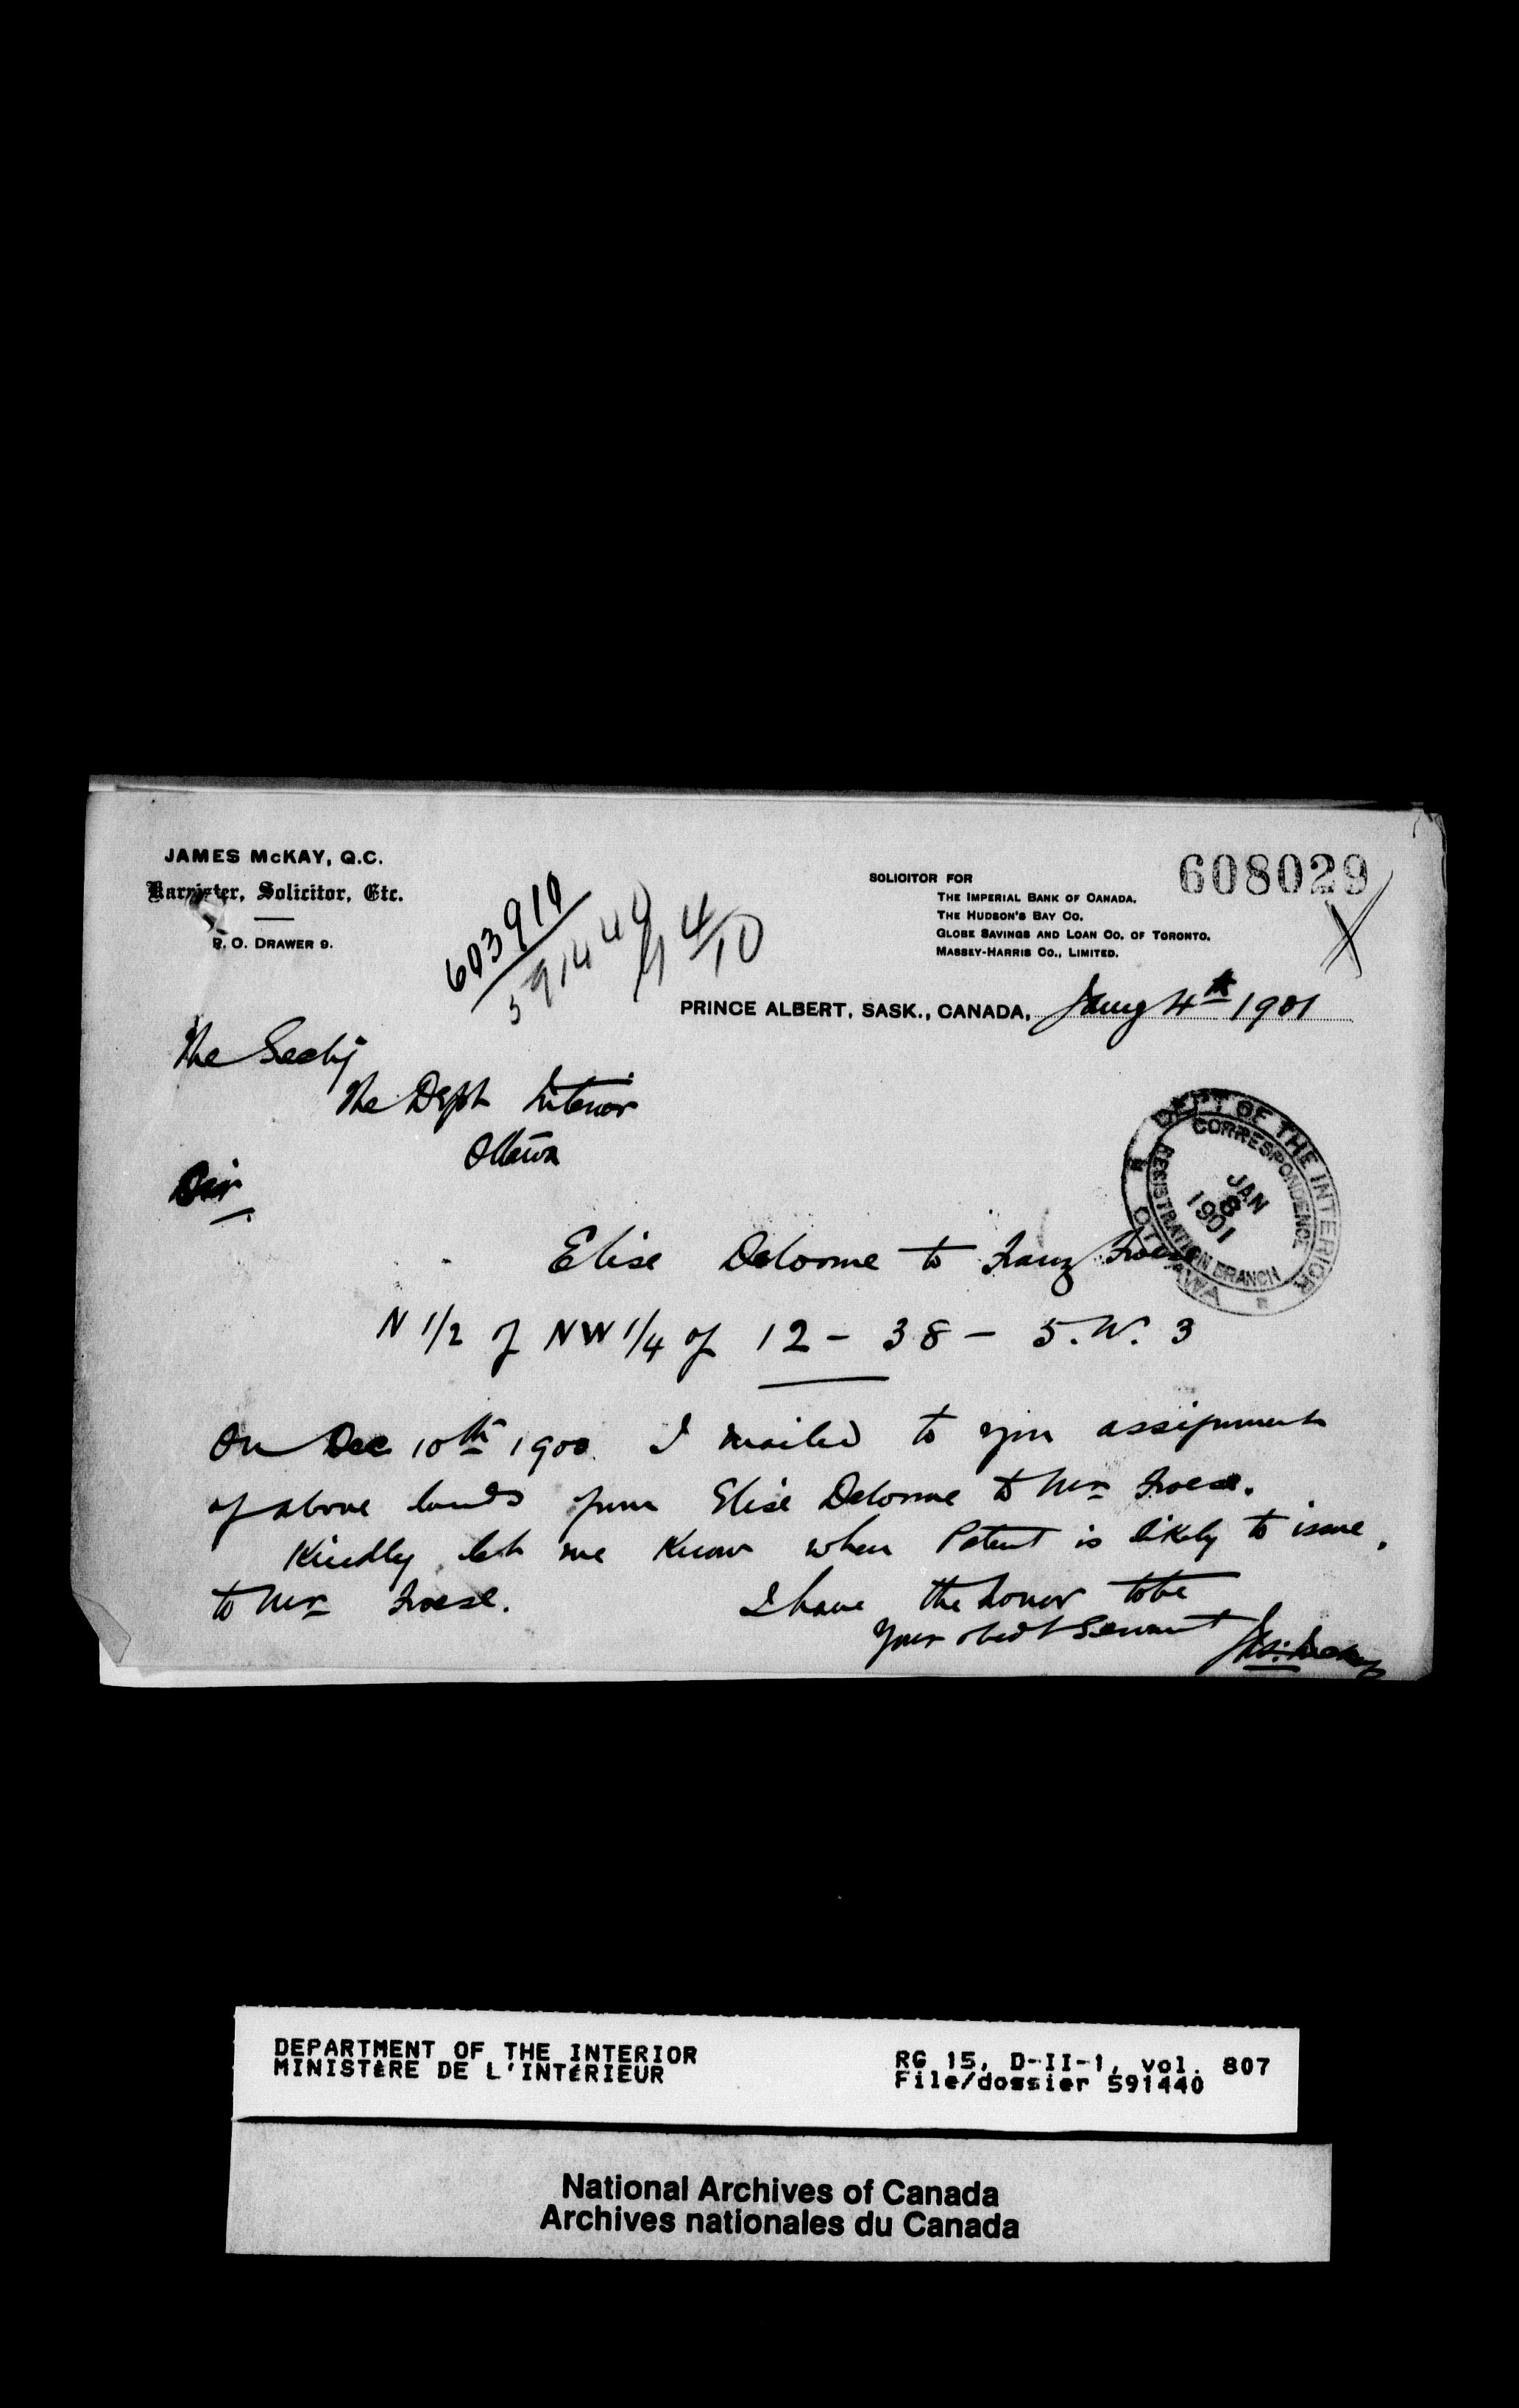 JAMES McKAY, Q.C.
Barrister, Solicitor, Etc.
P. O. DRAWER 9.
603910
591440
SOLICITOR FOR
THE IMPERIAL BANK OF CANADA.
THE HUDSON'S BAY CO.
GLOBE SAVINGS AND LOAN CO. OF TORONTO.
MASSEY-HARRIS CO., LIMITED.
608029
PRINCE ALBERT, SASK., CANADA, Jany 4th 1901
The Secty
The Dept Interior
Ottawa
Sir
DEPT OF THE INTERIOR
OTTAWA
CORRESPONDENCE
REGISTRATION BRANCH
JAN
8
1901
Elise Delorme to Franz Froese
N 1/2 of NW 1/4 of 12 - 38 - 5. W. 3
On Dec 10th 1900 I mailed to you assignment
of above lands from Elise Delorme to Mr Froese.
Kindly let me know when Patent is likely to issue
to Mr Froese. I have the honor to be
Your obedt Servant
Jas. McKay
DEPARTMENT OF THE INTERIOR
MINISTÈRE DE L'INTÉRIEUR
RG 15, D-II-1, vol. 807
File/dossier 591440
National Archives of Canada
Archives nationales du Canada